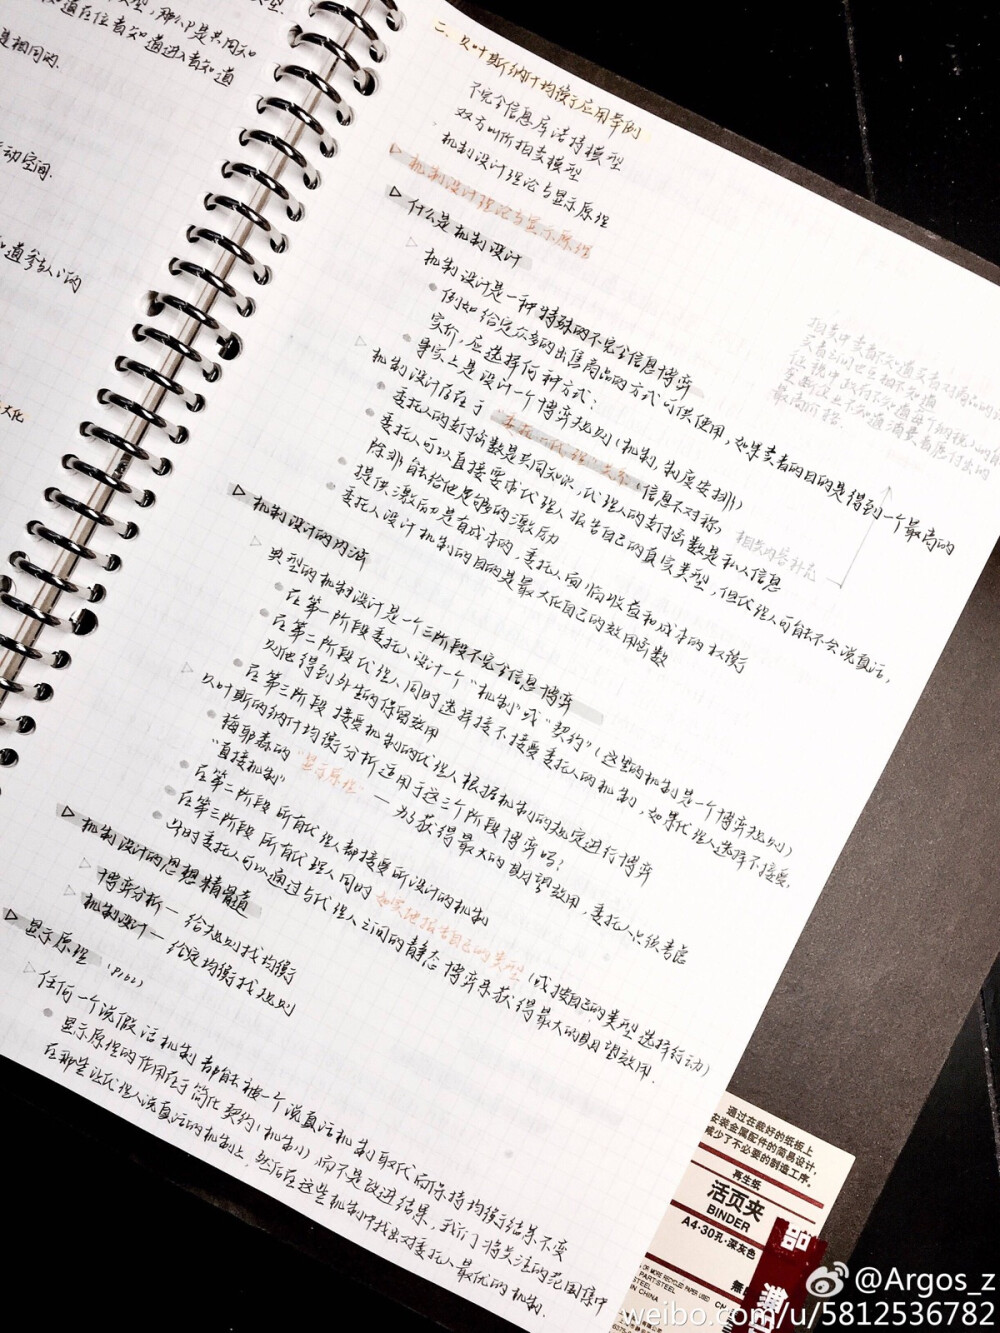 型,那么P是共同知
知道在位者知道进入者知道
是相同的.
动空间.
道参与人i的
大化
二、贝叶斯纳什均衡应用举例
不完全信息库诺特模型
双方叫价拍卖模型
机制设计理论与显示原理
机制设计理论与显示原理
什么是机制设计
机制设计是一种特殊的不完全信息博弈
例如给定众多的出售商品的方式可供使用,如果卖者的目的是得到一个最高的
卖价,应选择何种方式?
事实上是设计一个博弈规则(机制,制度安排)
机制设计存在于委托-代理关系(信息不对称)
委托人的支付函数是共同知识,代理人的支付函数是私人信息
委托人可以直接要求代理人报告自己的真实类型,但代理人可能不会说真话,
除非能给他足够的激励
提供激励是有成本的,委托人面临收益和成本的权衡
委托人设计机制的目的是最大化自己的效用函数
相关内容补充
拍卖中卖者不知道买者对商品的
买者之间也互相不知道
征税中政府不知道每个纳税人的
垄断企业不知道消费者愿付出的
最高价格.
机制设计的内涵
典型的机制设计是一个三阶段不完全信息博弈
在第一阶段委托人设计一个“机制”或“契约”(这里的机制是一个博弈规则)
在第二阶段代理人同时选择接不接受委托人的机制,如果代理人选择不接受,
则他得到外生的保留效用
在第三阶段接受机制的代理人根据机制的规定进行博弈
贝叶斯的纳什均衡分析适用于这三个阶段博弈吗?
梅耶森的“显示原理”——为了获得最大的期望效用,委托人只须考虑
“直接机制”
在第二阶段所有代理人都接受所设计的机制
在第三阶段所有代理人同时如实地报告自己的类型(或按自己的类型选择行动)
此时委托人可以通过与代理人之间的静态博弈来获得最大的期望效用.
机制设计的思想精髓
博弈分析—给规则找均衡
机制设计—给定均衡找规则
显示原理 (P162)
任何一个说假话机制都能被一个说真话机制取代而保持均衡结果不变
显示原理的作用在于简化契约(机制)而不是改进结果,我们将关注的范围集中
在那些让代理人说真话的机制上,然后在这些机制中找出对委托人最优的机制.
通过在裁好的纸板上
安装金属配件的简易设计,
减少了不必要的制造工序。
再生纸
活页夹
BINDER
A4·30孔·深灰色
@Argos_z
weibo.com/u/5812536782